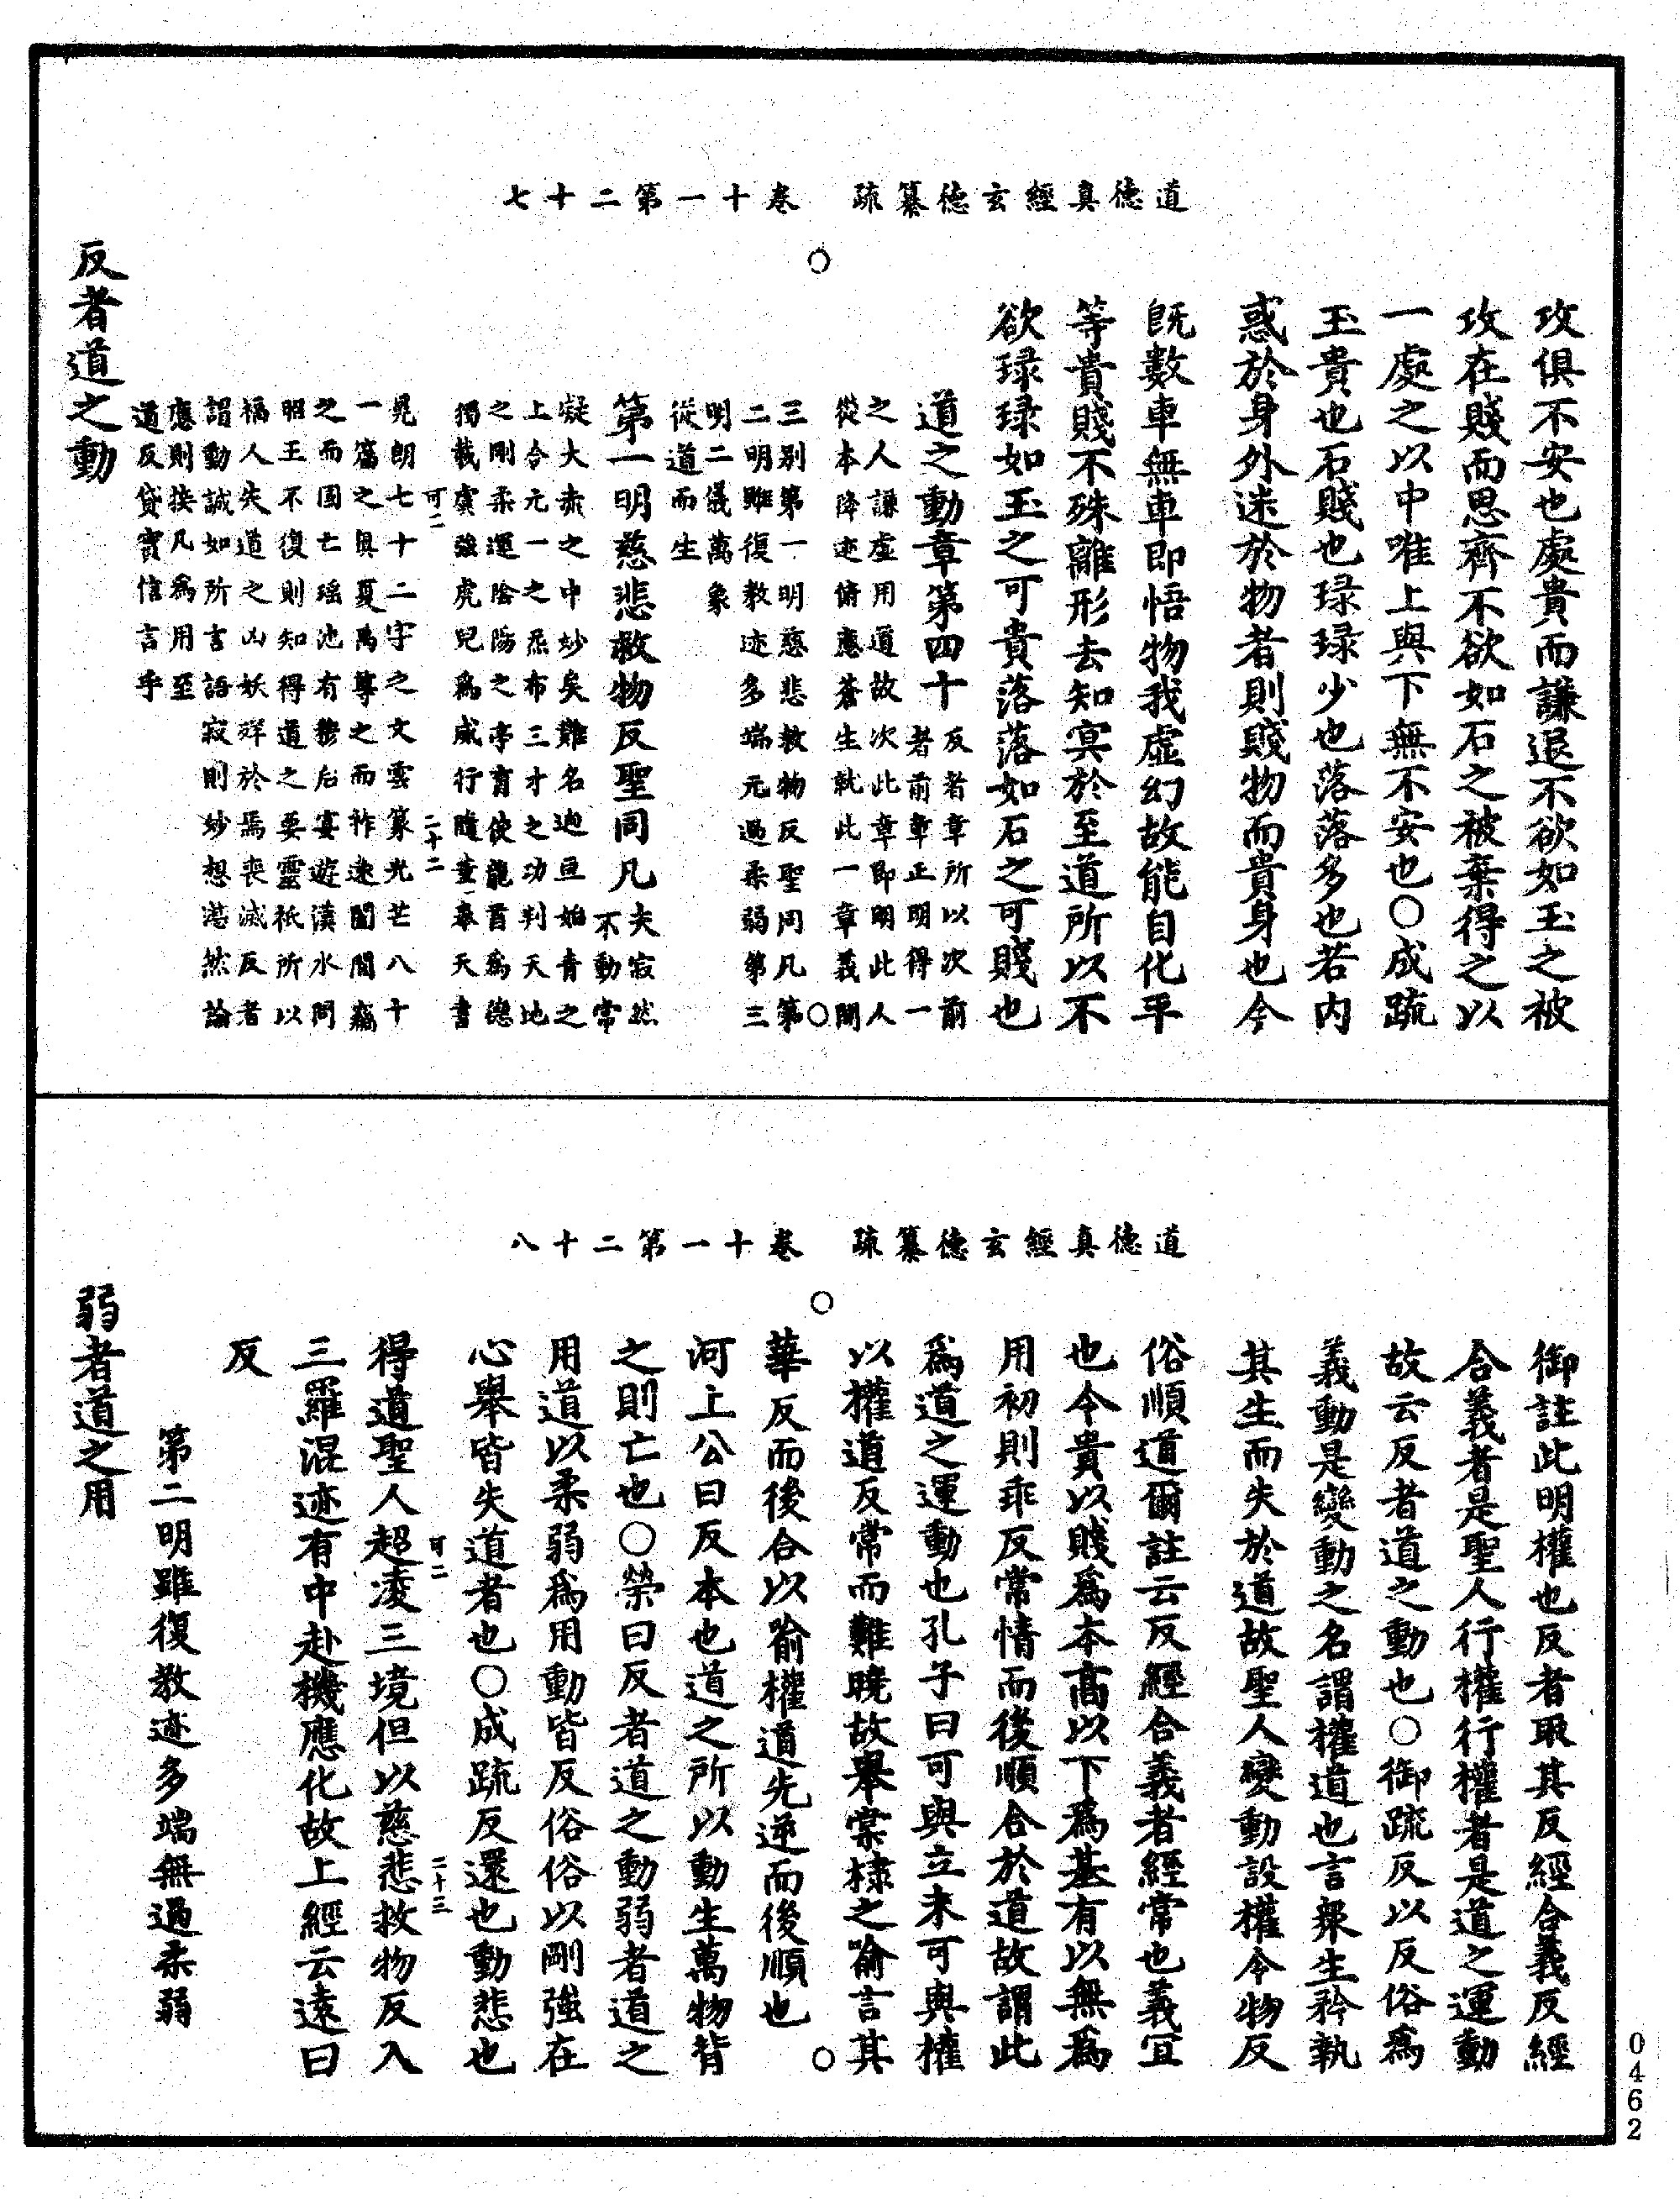 道德真經玄德纂疏　卷十一第二十七
攻俱不安也處貴而謙退不欲如玉之被
攻在賤而思齊不欲如石之被棄得之以
一處之以中唯上與下無不安也○成疏
玉貴也石賤也琭琭少也落落多也若内
惑於身外迷於物者則賤物而貴身也今
既數車無車即悟物我虛幻故能自化平
等貴賤不殊離形去知冥於至道所以不
欲琭琭如玉之可貴落落如石之可賤也
道之動章第四十
反者章所以次前
者前章正明得一
之人謙虛用道故次此章即明此人
從本降迹俯應蒼生就此一章義開
三別第一明慈悲救物反聖同凡第
二明雖復教迹多端元過柔弱第三
明二儀萬象
從道而生
第一明慈悲救物反聖同凡
夫寂然
不動常
凝大赤之中妙矣難名迥亘始青之
上合元一之炁布三才之功判天地
之剛柔運陰陽之亭育使龍首爲德
獨義虞強虎兒爲威行隨董奉天書
可二　二十二
晃朗七十二字之文雲篆光芒八十
一篇之奧夏禹尊之而祚遠闔閭竊
之而國亡瑤池有穆后宴遊漢水問
昭王不復則知得道之要靈祇所以
福人失道之凶妖祥於焉喪滅反者
謂動誠如所言語寂則妙想湛然論
應則接凡爲用至
道反貸實信言乎
反者道之動
道德真經玄德纂疏　卷十一第二十八
御註此明權也反者取其反經合義反經
合義者是聖人行權行權者是道之運動
故云反者道之動也○御疏反以反俗爲
義動是變動之名謂權道也言衆生矜執
其生而失於道故聖人變動設權令物反
俗順道爾註云反經合義者經常也義宜
也今貴以賤爲本高以下爲基有以無爲
用初則乖反常情而後順合於道故謂此
爲道之運動也孔子曰可與立未可與權
以權道反常而難曉故舉棠棣之喻言其
華反而後合以喻權道先逆而後順也○
河上公曰反本也道之所以動生萬物背
之則亡也○榮曰反者道之動弱者道之
用道以柔弱爲用動皆反俗俗以剛強在
心舉皆失道者也○成疏反還也動悲也
得道聖人超凌三境但以慈悲救物反入
可二　二十三
三羅混迹有中赴機應化故上經云遠曰
反
第二明雖復教迹多端無過柔弱
弱者道之用
0462